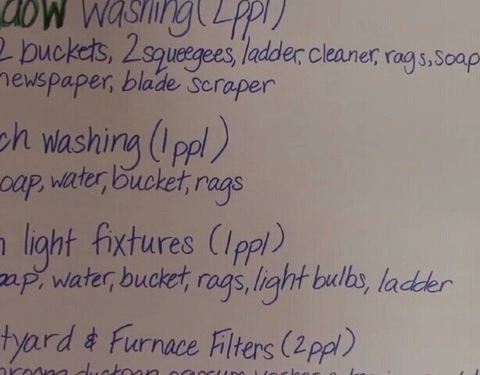 washing (2ppl)
2 buckets, 2 squeegees, ladder, cleaner, rags, soap
newspaper, blade scraper
ch washing (1ppl)
oap, water, bucket, rags
light fixtures (1ppl)
oap, water, bucket, rags, light bulbs, ladder
tyard & Furnace Filters (2ppl)